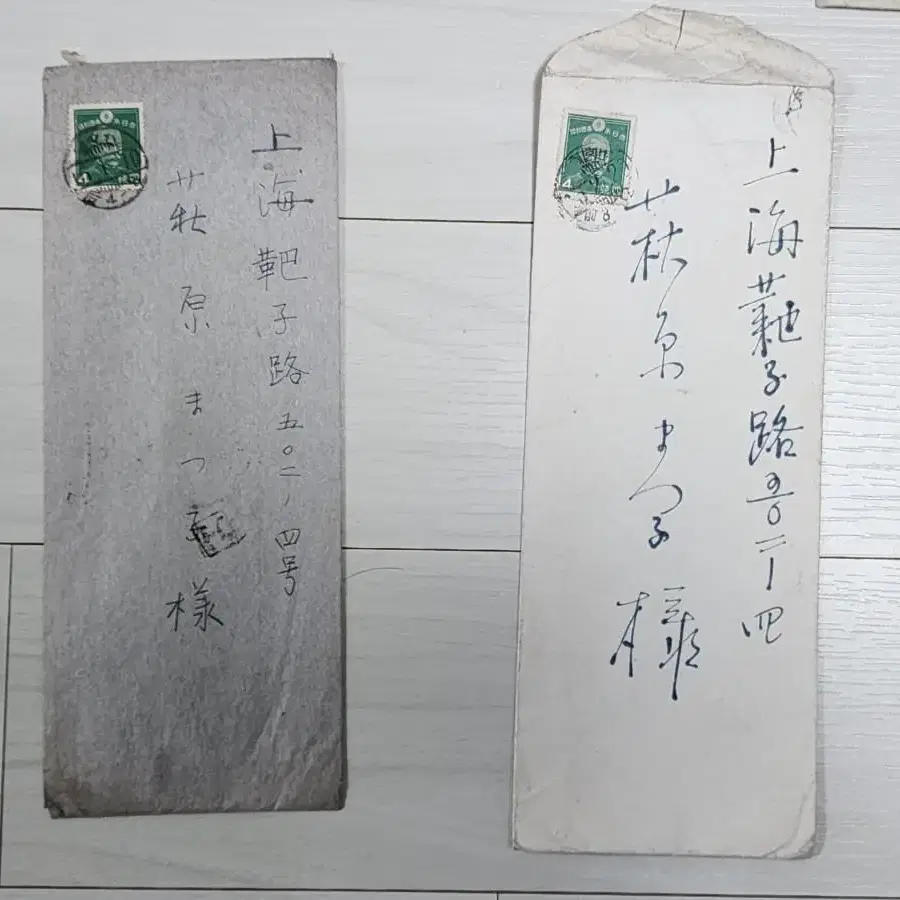 上海靶子路五〇二ノ四号
萩原まつ
様
上海靶子路五〇二ー四
萩原まつ子様